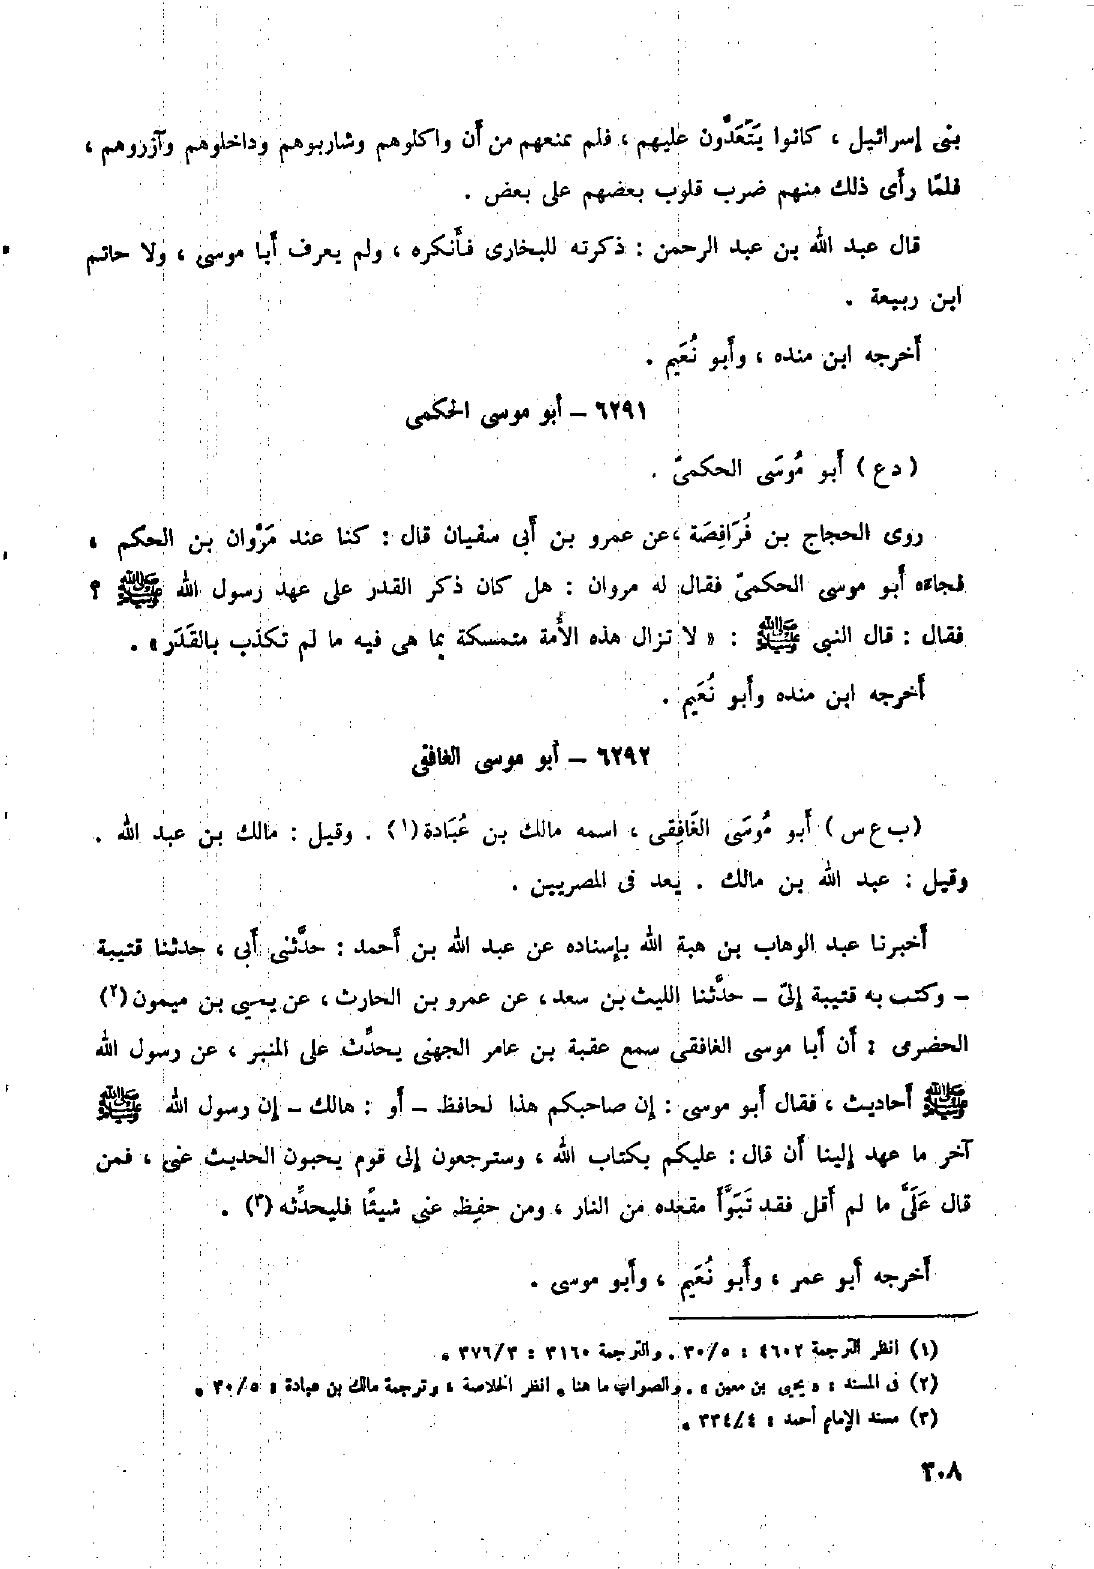 بنى إسرائيل ، كانوا يَتَعَدَّون عليهم ، فلم يمنعهم من أَن واكلوهم وشاربوهم وداخلوهم وآزروهم ،
فلمّا رأَى ذلك منهم ضرب قلوب بعضهم على بعض .
قال عبد الله بن عبد الرحمن : ذكرته للبخارى فأَنكره ، ولم يعرف أَبا موسى ، ولا حاتم
ابن ربيعة .
أَخرجه ابن منده ، وأَبو نُعَيم .
٦٢٩١ – أبو موسى الحكمى
( دع ) أَبو مُوسَى الحكمىّ .
روى الحجاج بن فُرَافِصَة ، عن عمرو بن أَبى سفيان قال : كنا عند مَرْوان بن الحكم ،
فجاءَه أَبو موسى الحكمىّ فقال له مروان : هل كان ذكر القدر على عهد رسول الله ﷺ ؟
فقال : قال النبى ﷺ : « لا تزال هذه الأُمة متمسكة بما هى فيه ما لم تكذب بالقَدَر » .
أَخرجه ابن منده وأَبو نُعَيم .
٦٢٩٢ – أبو موسى الغافقى
( ب ع س ) أَبو مُوسَى الغَافِقِى ، اسمه مالك بن عُبَادة (١) . وقيل : مالك بن عبد الله .
وقيل : عبد الله بن مالك . يعد فى المصريين .
أَخبرنا عبد الوهاب بن هبة الله بإسناده عن عبد الله بن أَحمد : حدَّثنى أَبى ، حدثنا قتيبة
– وكتب به قتيبة إلىّ – حدَّثنا الليث بن سعد ، عن عمرو بن الحارث ، عن يحيى بن ميمون (٢)
الحضرمى : أَن أَبا موسى الغافقى سمع عقبة بن عامر الجهنى يحدِّث على المنبر ، عن رسول الله
ﷺ أَحاديث ، فقال أَبو موسى : إن صاحبكم هذا لحافظ – أَو : هالك – إن رسول الله ﷺ
آخر ما عهد إلينا أَن قال : عليكم بكتاب الله ، وسترجعون إلى قوم يحبون الحديث عنى ، فمن
قال عَلَىَّ ما لم أَقل فقد تَبَوَّأَ مقعده من النار ، ومن حفِظ عنى شيئًا فليحدِّثه (٣) .
أَخرجه أَبو عمر ، وأَبو نُعَيم ، وأَبو موسى .
(١) انظر الترجمة ٤٦٠٢ : ٣٠/٥ . والترجمة ٣١٦٠ : ٣٧٦/٣ .
(٢) فى المسند : « يحيى بن معين » . والصواب ما هنا . انظر الخلاصة ، وترجمة مالك بن عبادة : ٣٠/٥ .
(٣) مسند الإمام أحمد : ٣٣٤/٤ .
٣٠٨